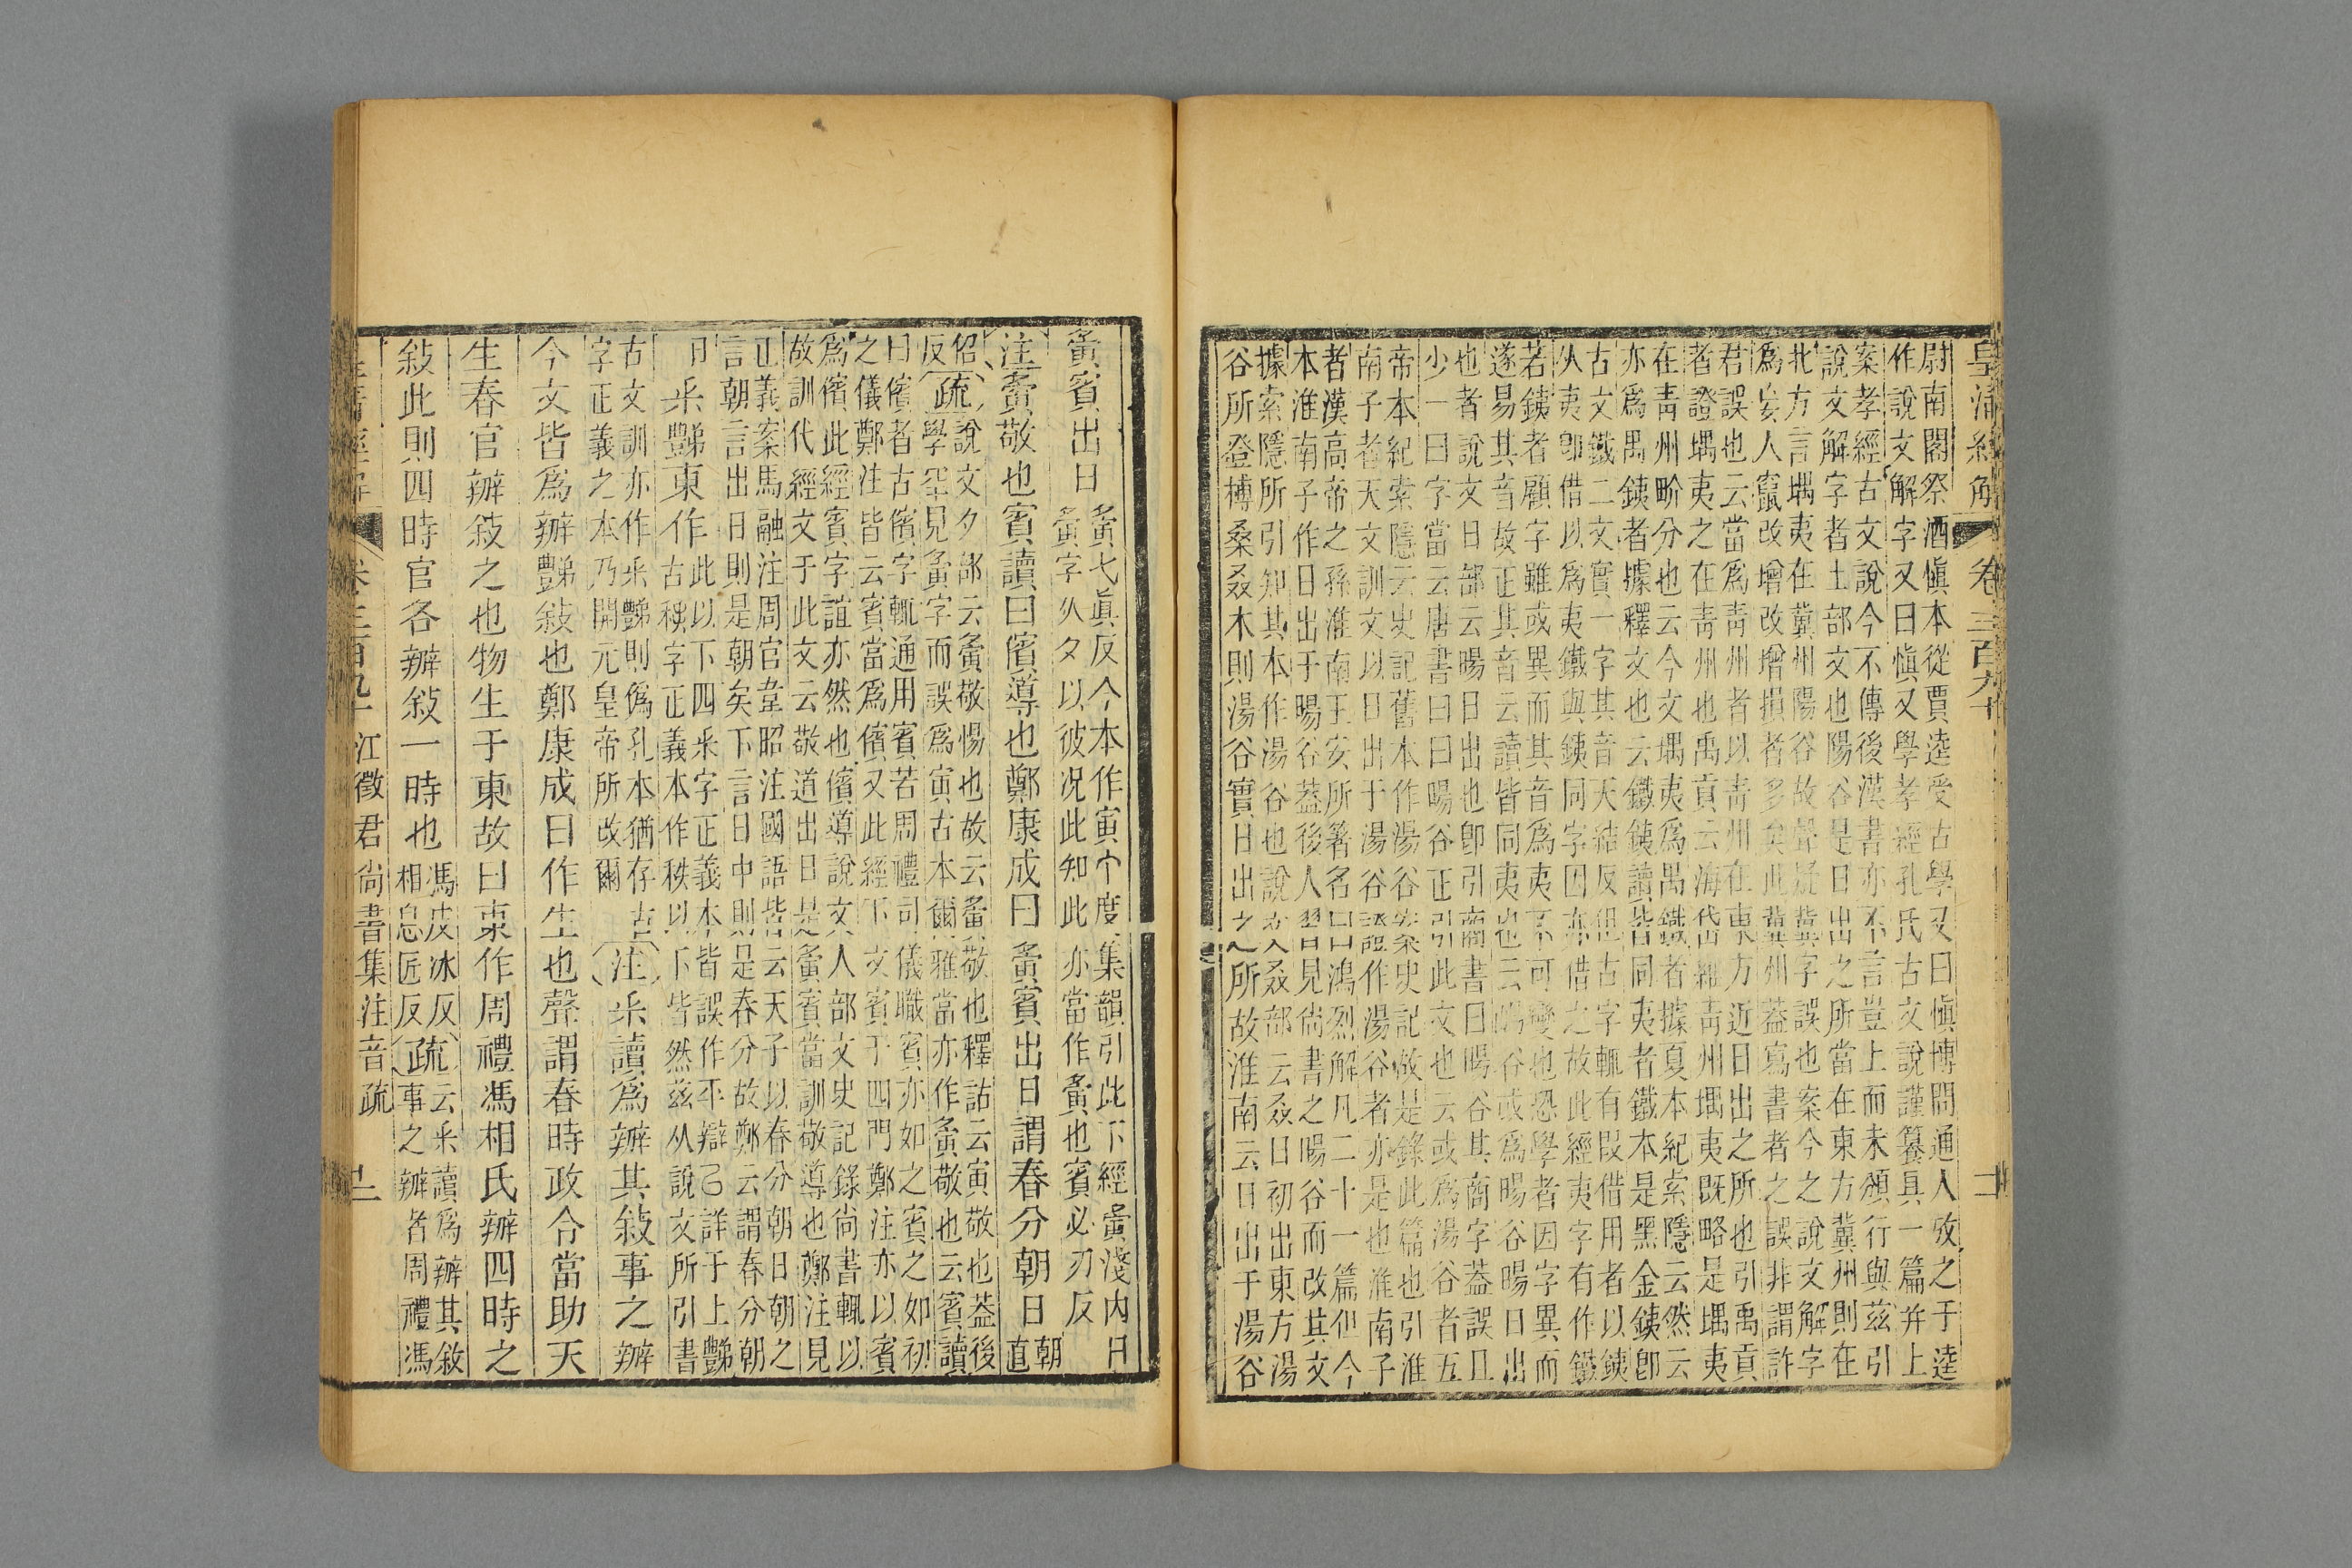 皇清經解 卷三百九十
尉南閣祭酒愼本從賈逵受古學又曰愼博問通人攷之于逵
作說文解字又曰愼又學孝經孔氏古文說謹篹具一篇并上
案孝經古文說今不傳後漢書亦不言豈上而未頒行與茲引
說文解字者土部文也陽谷是日出之所當在東方冀州則在
北方言堣夷在冀州陽谷故聲疑冀字誤也案今之說文解字
爲妄人竄改增改增損者多矣此冀州葢寫書者之誤非謂許
君誤也云當爲靑州者以靑州在東方近日出之所也引禹貢
者證堣夷之在靑州也禹貢云海岱維靑州堣夷旣略是堣夷
在靑州畍分也云今文堣夷爲禺鐵者據夏本紀索隱云然云
亦爲禺銕者據釋文也云鐵銕讀皆同夷者鐵本是黑金銕卽
古文鐵二文實一字其音天結反但古字輒有叚借用者以銕
从夷卽借以爲夷鐵與銕同字因亦借之故此經夷字有作鐵
若銕者顧字雖或異而其音爲夷不可變也恐學者因字異而
遂易其音故正其音云讀皆同夷也云暘谷或爲暘谷暘日出
也者說文日部云暘日出也卽引商書曰暘谷其商字葢誤且
少一曰字當云唐書曰曰暘谷正引此文也云或爲湯谷者五
帝本紀索隱云史記舊本作湯谷案史記故是錄此篇也引淮
南子者天文訓文以日出于湯谷證作湯谷者亦是也淮南子
者漢高帝之孫淮南王安所著名曰鴻烈解凡二十一篇但今
本淮南子作日出于暘谷葢後人習見尙書之暘谷而改其文
據索隱所引知其本作湯谷也說文叒部云叒日初出東方湯
谷所登榑桑叒木則湯谷實日出之所故淮南云日出于湯谷
夤賓出日 夤弋眞反今本作寅中度集韻引此下經夤淺內日
夤字从夕以彼况此知此亦當作夤也賓必刃反
注夤敬也賓讀曰儐導也鄭康成曰夤賓出日謂春分朝日 朝直
佋反 疏 說文夕部云夤敬惕也故云夤敬也釋詁云寅敬也葢後
學罕見夤字而誤爲寅古本爾雅當亦作夤敬也云賓讀
曰儐者古儐字輒通用賓若周禮司儀職賓亦如之賓之如初
之儀鄭注皆云賓當爲儐又此經下文賓于四門鄭注亦以賓
爲儐此經賓字誼亦然也儐導說文人部文史記錄尙書輒以
故訓代經文于此文云敬道出日是夤賓當訓敬導也鄭注見
正義案馬融注周官韋昭注國語皆云天子以春分朝日朝之
言朝言出日則是朝矣下言日中則是春分故鄭云謂春分朝
日 釆豑東作 此以下四釆字正義本皆誤作平辯已詳于上豑
古䄷字正義本作秩以下皆然茲从說文所引書
古文訓亦作釆豑則僞孔本猶存古
字正義之本乃開元皇帝所改爾 注釆讀爲辦其敍事之辦
今文皆爲辦豑敍也鄭康成曰作生也聲謂春時政令當助天
生春官辦敍之也物生于東故曰東作周禮馮相氏辦四時之
敍此則四時官各辦敍一時也 馮皮冰反相息匠反 疏 云釆讀爲辦其敍事之辦者周禮馮
卷三百九十 江徵君尙書集注音疏